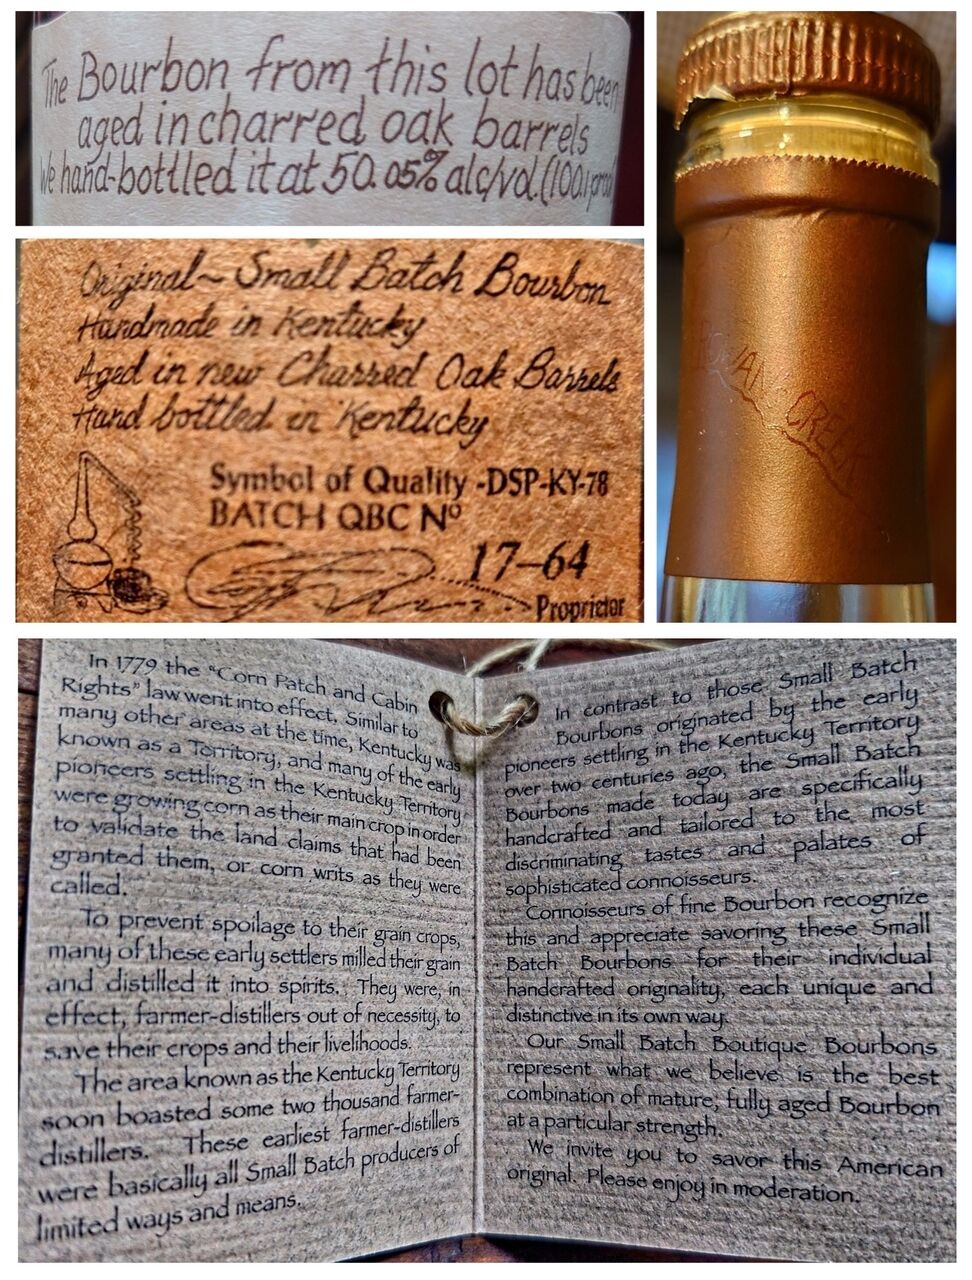 The Bourbon from this lot has been
aged in charred oak barrels
We hand-bottled it at 50.05% alc/vol. (100.1 proof
Original~ Small Batch Bourbon
Handmade in Kentucky
Aged in new Charred Oak Barrels
Hand bottled in Kentucky
Symbol of Quality -DSP-KY-78
BATCH QBC Nº
17-64
Proprietor
ROWAN CREEK
In 1779 the "Corn Patch and Cabin
Rights" law went into effect. Similar to
many other areas at the time, Kentucky was
known as a Territory, and many of the early
pioneers settling in the Kentucky Territory
were growing corn as their main crop in order
to validate the land claims that had been
granted them, or corn writs as they were
called.
To prevent spoilage to their grain crops,
many of these early settlers milled their grain
and distilled it into spirits. They were, in
effect, farmer-distillers out of necessity, to
save their crops and their livelihoods.
The area known as the Kentucky Territory
soon boasted some two thousand farmer-
distillers. These earliest farmer-distillers
were basically all Small Batch producers of
limited ways and means.
In contrast to those Small Batch
Bourbons originated by the early
pioneers settling in the Kentucky Territory
over two centuries ago, the Small Batch
Bourbons made today are specifically
handcrafted and tailored to the most
discriminating tastes and palates of
sophisticated connoisseurs.
Connoisseurs of fine Bourbon recognize
this and appreciate savoring these Small
Batch Bourbons for their individual
handcrafted originality, each unique and
distinctive in its own way.
Our Small Batch Boutique Bourbons
represent what we believe is the best
combination of mature, fully aged Bourbon
at a particular strength.
We invite you to savor this American
original. Please enjoy in moderation.